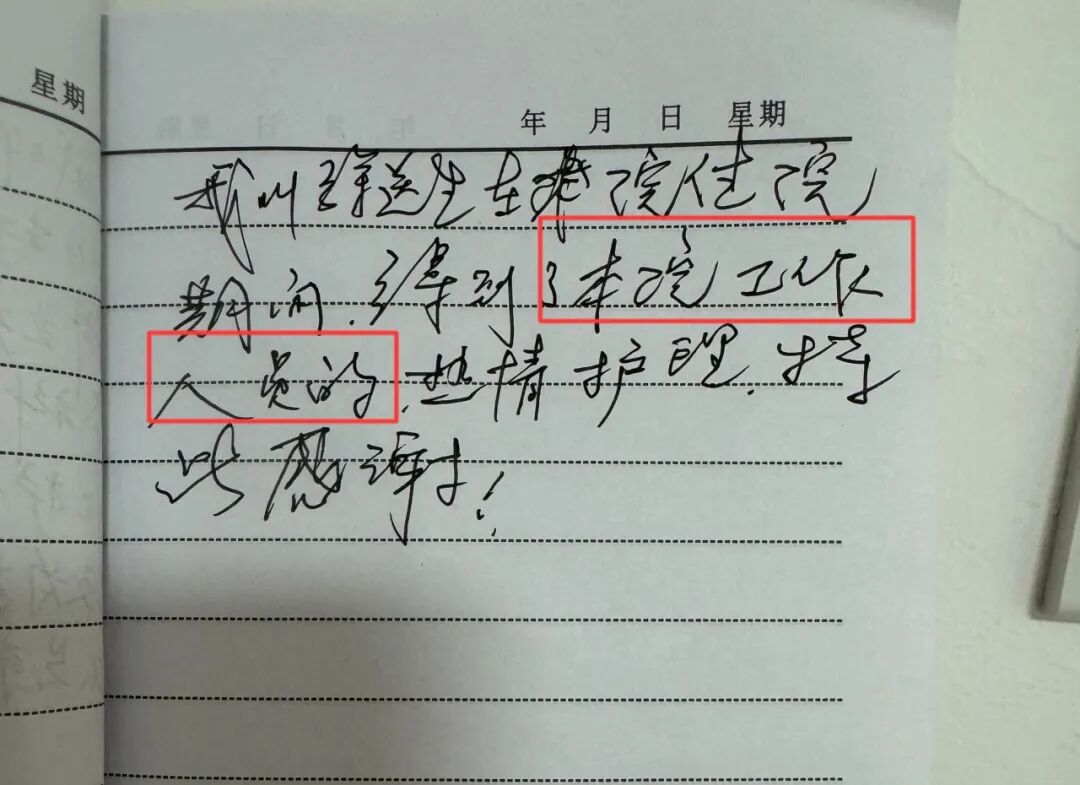 星期
年 月 日 星期
我叫徐送生在本院住院
期间.得到了本院工作
人员的.热情护理.特
此感谢!